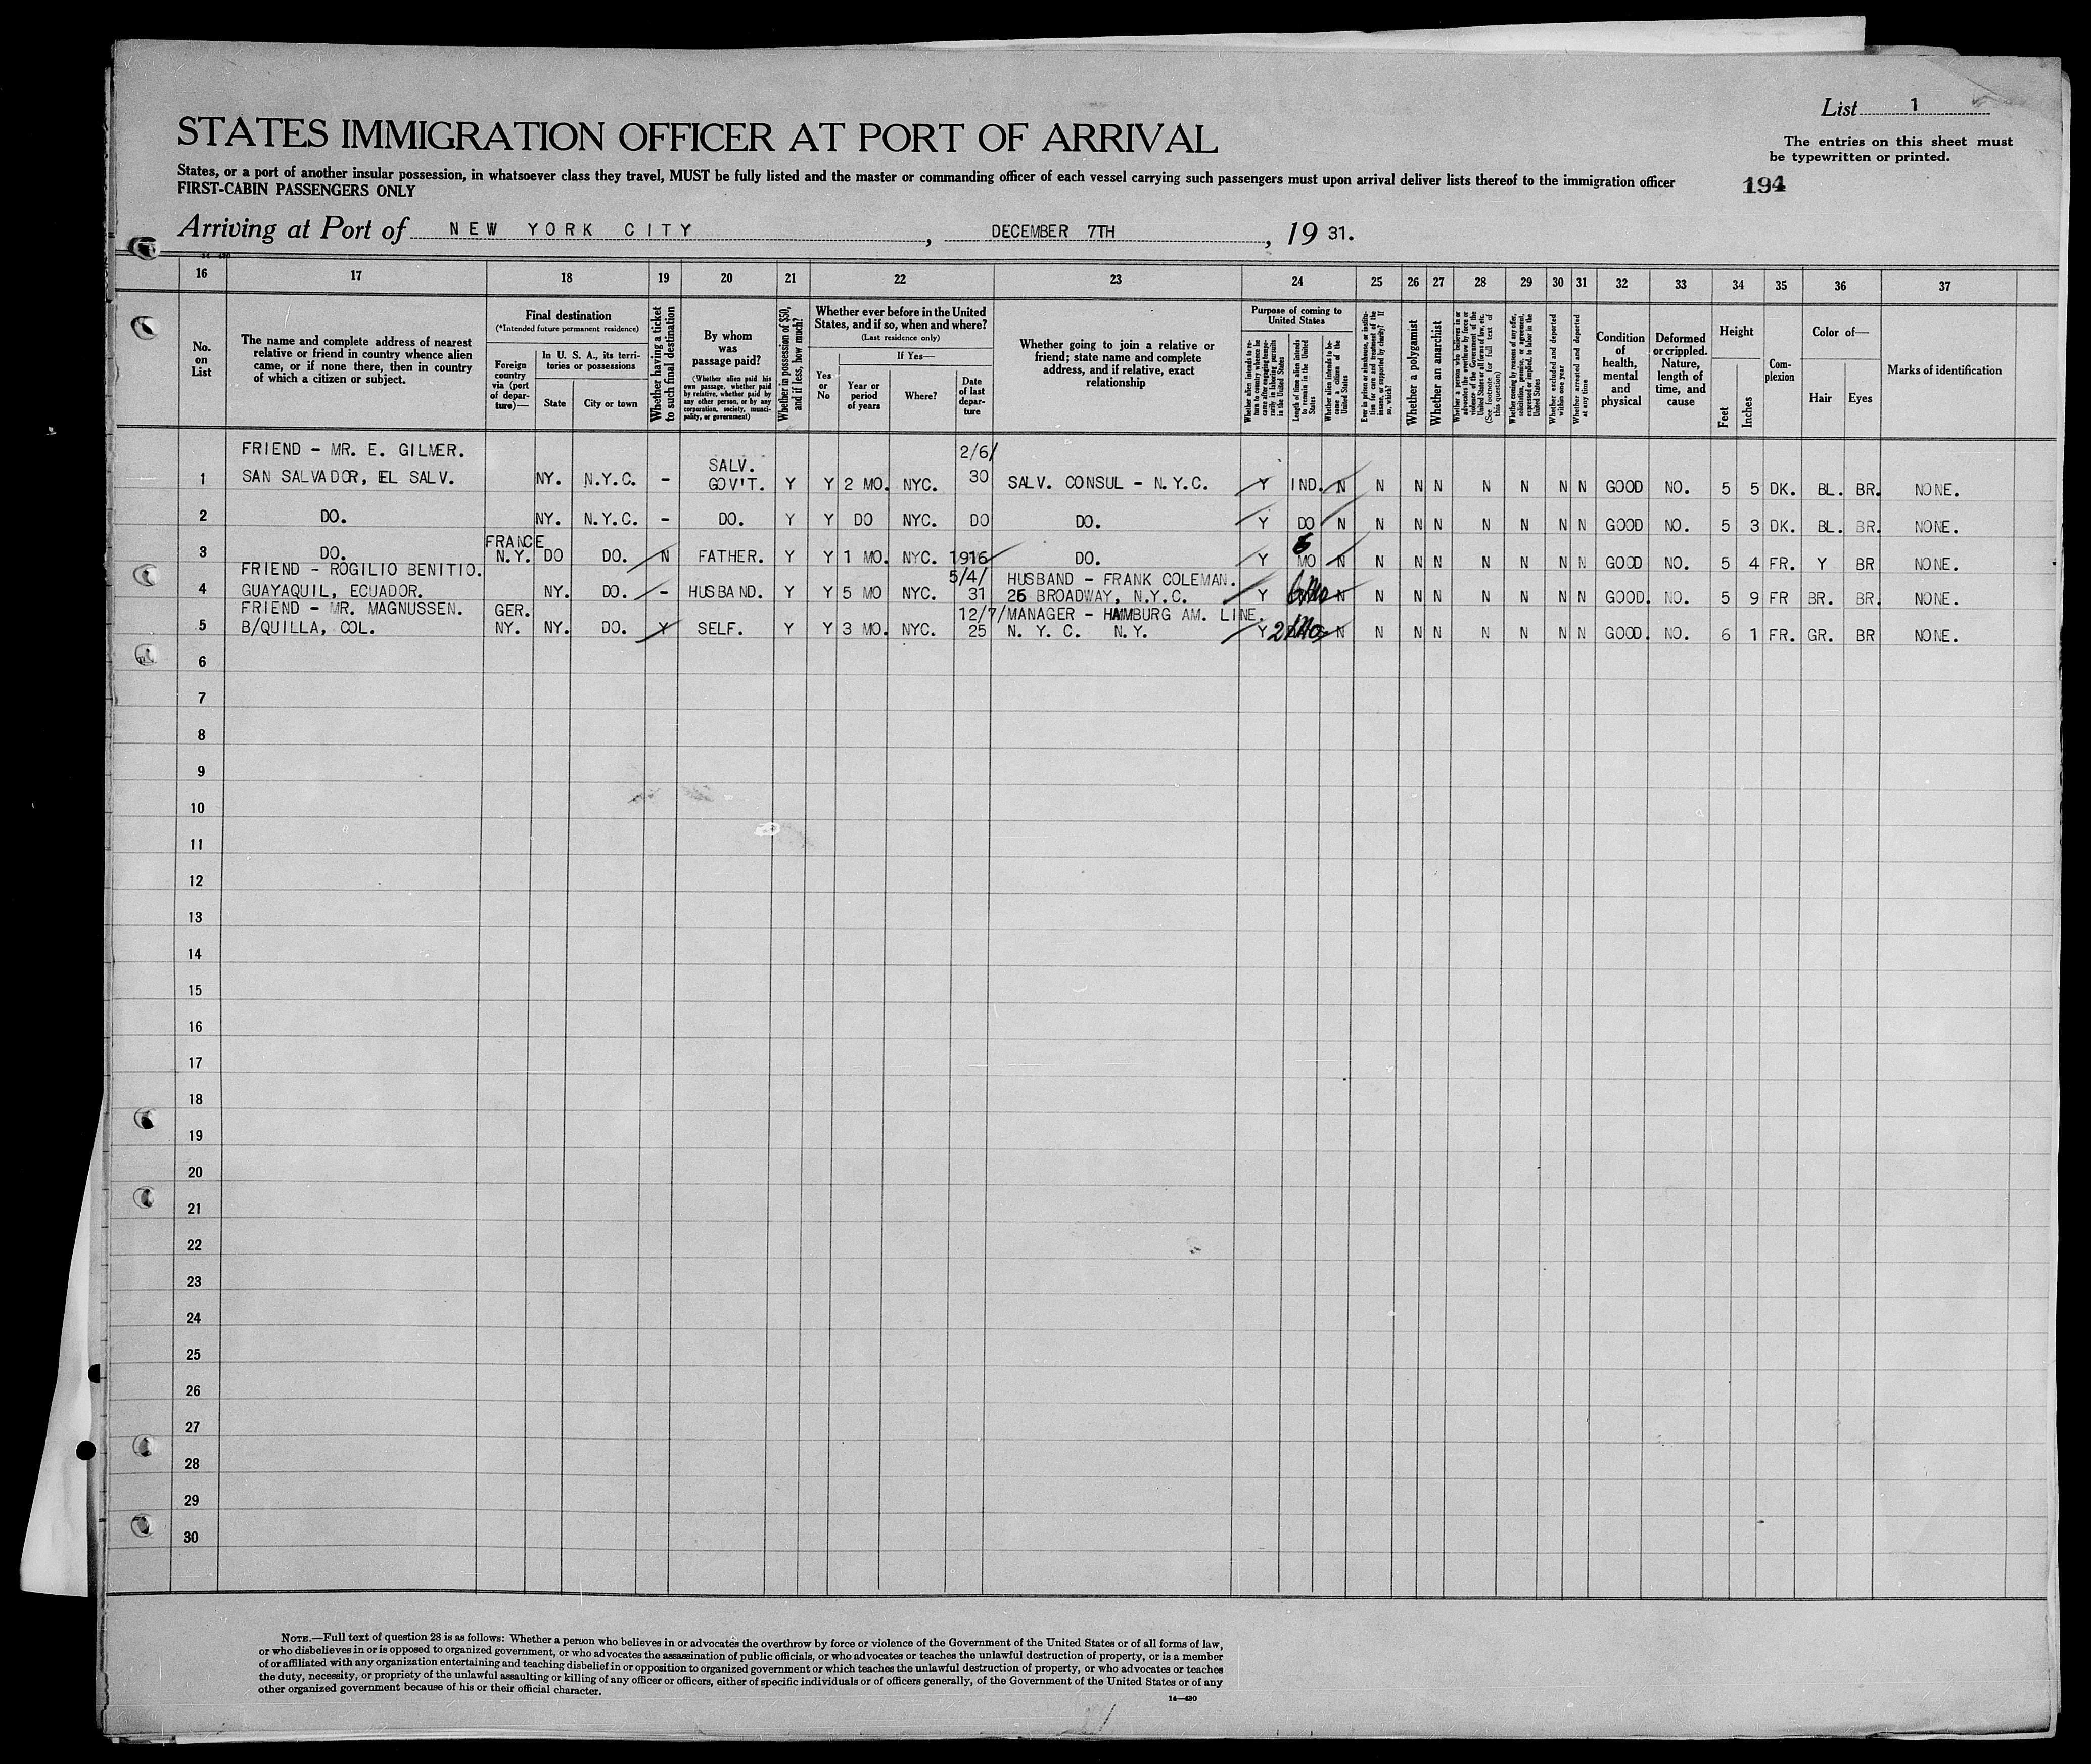 List 1
STATES IMMIGRATION OFFICER AT PORT OF ARRIVAL
The entries on this sheet must
be typewritten or printed.
States, or a port of another insular possession, in whatsoever class they travel, MUST be fully listed and the master or commanding officer of each vessel carrying such passengers must upon arrival deliver lists thereof to the immigration officer
FIRST-CABIN PASSENGERS ONLY
194
Arriving at Port of NEW YORK CITY, DECEMBER 7TH, 19 31.
16 17 18 19 20 21 22 23 24 25 26 27 28 29 30 31 32 33 34 35 36 37
No. on List
The name and complete address of nearest
relative or friend in country whence alien
came, or if none there, then in country
of which a citizen or subject.
Final destination
(*Intended future permanent residence)
Foreign country via (port of departure)—
In U. S. A., its territories or possessions
State
City or town
Whether having a ticket to such final destination
By whom was passage paid?
(Whether alien paid his own passage, whether paid by relative, whether paid by any other person, or by any corporation, society, municipality, or government)
Whether in possession of $50, and if less, how much?
Whether ever before in the United
States, and if so, when and where?
(Last residence only)
Yes or No
If Yes—
Year or period of years
Where?
Date of last departure
Whether going to join a relative or
friend; state name and complete
address, and if relative, exact
relationship
Purpose of coming to United States
Whether alien intends to return to country whence he came after engaging temporarily in laboring pursuits in the United States
Length of time alien intends to remain in the United States
Whether alien intends to become a citizen of the United States
Ever in prison or almshouse, or institution for care and treatment of the insane, or supported by charity? If so, which?
Whether a polygamist
Whether an anarchist
Whether a person who believes in or advocates the overthrow by force or violence of the Government of the United States or all forms of law, etc. (See footnote for full text of this question)
Whether coming by reason of any offer, solicitation, promise, or agreement, expressed or implied, to labor in the United States
Whether excluded and deported within one year
Whether arrested and deported at any time
Condition of health, mental and physical
Deformed or crippled. Nature, length of time, and cause
Height
Feet
Inches
Complexion
Color of—
Hair
Eyes
Marks of identification
FRIEND - MR. E. GILMER. SALV. 2/6/
1 SAN SALVADOR, EL SALV. NY. N.Y.C. - GOV'T. Y Y 2 MO. NYC. 30 SALV. CONSUL - N.Y.C. Y IND. N N N N N N N N GOOD NO. 5 5 DK. BL. BR. NONE.
2 DO. NY. N.Y.C. - DO. Y Y DO NYC. DO DO. Y DO N N N N N N N N GOOD NO. 5 3 DK. BL. BR. NONE.
FRANCE 6
3 DO. N.Y. DO DO. N FATHER. Y Y 1 MO. NYC. 1916 DO. Y MO N N N N N N N N GOOD NO. 5 4 FR. Y BR NONE.
FRIEND - ROGILIO BENITIO. 5/4/ HUSBAND - FRANK COLEMAN.
4 GUAYAQUIL, ECUADOR. NY. DO. - HUSBAND. Y Y 5 MO NYC. 31 25 BROADWAY, N.Y.C. Y 6 Mo N N N N N N N N GOOD. NO. 5 9 FR BR. BR. NONE.
FRIEND - MR. MAGNUSSEN. GER. 12/7/ MANAGER - HAMBURG AM. LINE.
5 B/QUILLA, COL. NY. NY. DO. Y SELF. Y Y 3 MO. NYC. 25 N. Y. C. N.Y. Y 2 Mo N N N N N N N N GOOD. NO. 6 1 FR. GR. BR NONE.
6
7
8
9
10
11
12
13
14
15
16
17
18
19
20
21
22
23
24
25
26
27
28
29
30
NOTE.—Full text of question 28 is as follows: Whether a person who believes in or advocates the overthrow by force or violence of the Government of the United States or of all forms of law,
or who disbelieves in or is opposed to organized government, or who advocates the assassination of public officials, or who advocates or teaches the unlawful destruction of property, or is a member
of or affiliated with any organization entertaining and teaching disbelief in or opposition to organized government or which teaches the unlawful destruction of property, or who advocates or teaches
the duty, necessity, or propriety of the unlawful assaulting or killing of any officer or officers, either of specific individuals or of officers generally, of the Government of the United States or of any
other organized government because of his or their official character.
14—430